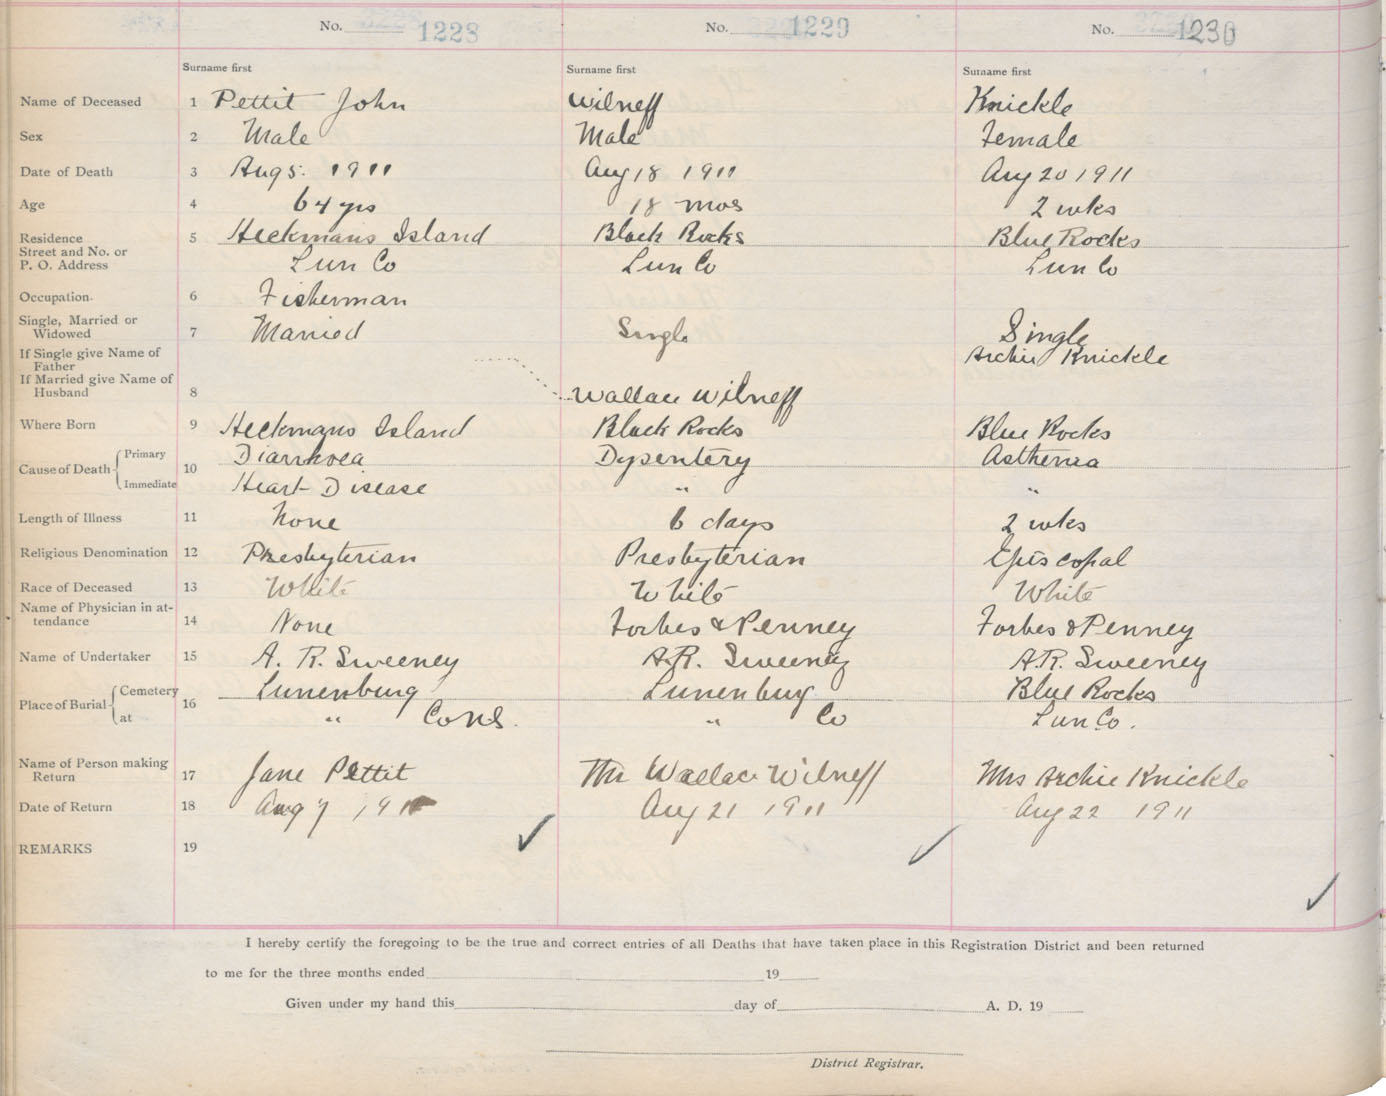 No. 1228 No. 1229 No. 1230
Surname first Surname first Surname first
Name of Deceased 1 Pettit John Wilneff Knickle
Sex 2 Male Male Female
Date of Death 3 Aug 5. 1911 Aug 18 1911 Aug 20 1911
Age 4 64 yrs 18 mos 2 wks
Residence 5 Heckmans Island Black Rocks Blue Rocks
Street and No. or
P. O. Address Lun Co Lun Co Lun Co
Occupation. 6 Fisherman
Single, Married or
Widowed 7 Married Single Single
If Single give Name of Archie Knickle
Father
If Married give Name of
Husband 8 Wallace Wilneff
Where Born 9 Heckmans Island Black Rocks Blue Rocks
Cause of Death Primary 10 Diarrhoea Dysentery Asthenia
Immediate Heart Disease " "
Length of Illness 11 None 6 days 2 wks
Religious Denomination 12 Presbyterian Presbyterian Episcopal
Race of Deceased 13 White White White
Name of Physician in at-
tendance 14 None Forbes & Penney Forbes & Penney
Name of Undertaker 15 A. R. Sweeney A.R. Sweeney A.R. Sweeney
Place of Burial Cemetery 16 Lunenburg Lunenburg Blue Rocks
at " Co N.S. " Co Lun Co.
Name of Person making
Return 17 Jane Pettit Wallace Wilneff Mrs Archie Knickle
Date of Return 18 Aug 7 1911 Aug 21 1911 Aug 22 1911
REMARKS 19
I hereby certify the foregoing to be the true and correct entries of all Deaths that have taken place in this Registration District and been returned
to me for the three months ended 19
Given under my hand this day of A. D. 19
District Registrar.